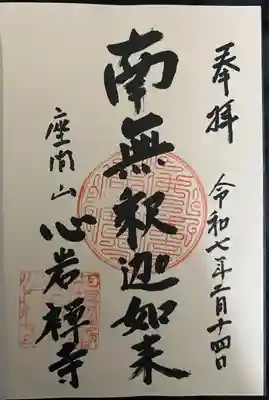 奉拝
令和七年二月十四日
南無釈迦如来
座間山
心岩禅寺